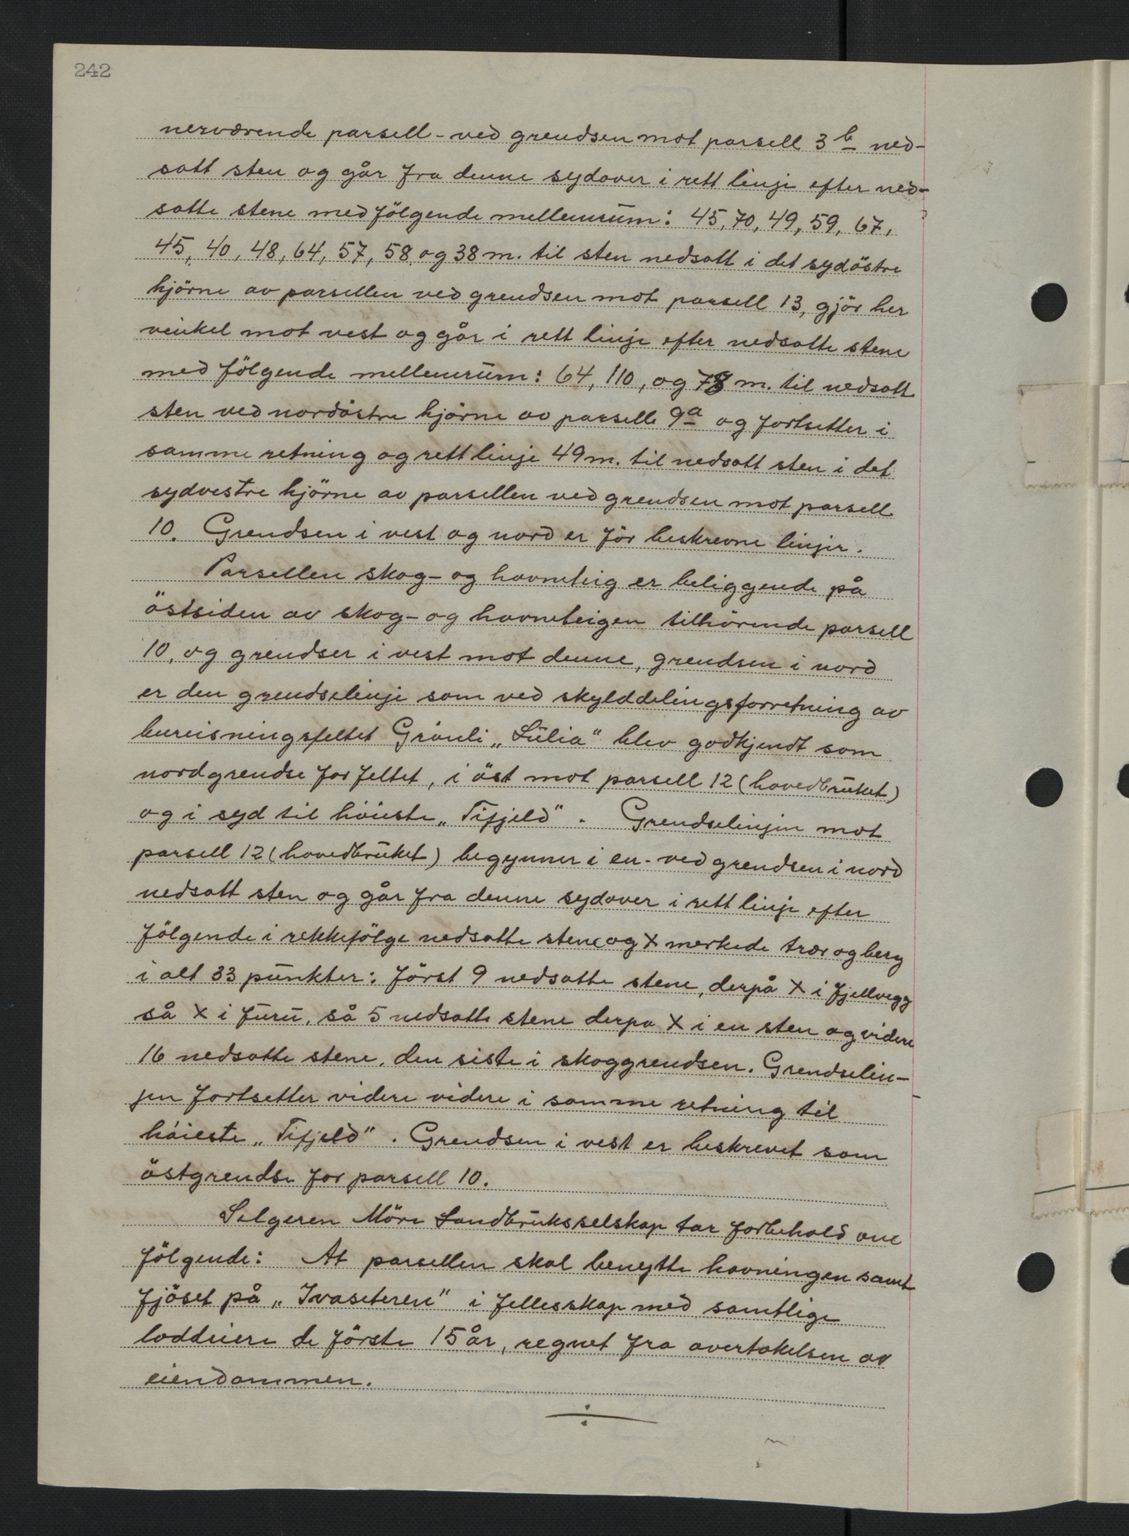 242
nerværende parsell - ved grendsen mot parsell 3 b ned-
satt sten og går fra denne sydover i rett linje efter ned-
satte stene med følgende mellemrum: 45, 70, 49, 59, 67,
45, 40, 48, 64, 57, 58 og 38 m. til sten nedsatt i det sydöstre
hjörne av parsellen ved grendsen mot parsell 13, gjör her
vinkel mot vest og går i rett linje efter nedsatte stene
med fölgende mellemrum: 64, 110, og 78 m. til nedsatt
sten ved nordöstre hjörne av parsell 9a og fortsetter i
samme retning og rett linje 49 m. til nedsatt sten i det
sydvestre hjörne av parsellen ved grendsen mot parsell
10. Grendsen i vest og nord er för beskrevne linjer.
Parsellen skog- og havneteig er beliggende på
östsiden av skog- og havneteigen tilhörende parsell
10, og grendser i vest mot denne, grendsen i nord
er den grendselinje som ved skylddelingsforretning av
bureisningsfeltet Grönli „Lülia" blev godkjendt som
nordgrendse for feltet, i öst mot parsell 12 (hovedbrüket)
og i syd til höieste „Tifjeld". Grendselinjen mot
parsell 12 (hovedbrüket) begynner i en - ved grendsen i nord
nedsatt sten og går fra denne sydover i rett linje efter
fölgende i rekkefölge nedsatte stene og X merkede trær og berg
i alt 33 pünkter: först 9 nedsatte stene, derpå X i fjellvegg
så X i furü, så 5 nedsatte stene derpa X i en sten og videre
16 nedsatte stene, den siste i skoggrendsen. Grendselin-
jen fortsetter videre videre i samme retning til
höieste „Tifjeld". Grendsen i vest er beskrevet som
östgrendse for parsell 10.
Selgeren Möre Landbrüksselskap tar forbehold om
fölgende: At parsellen skal benytte havningen samt
fjöset på „Ivaseteren" i fellesskap med samtlige
loddeiere de förste 15 år, regnet fra overtakelsen av
eiendommen.